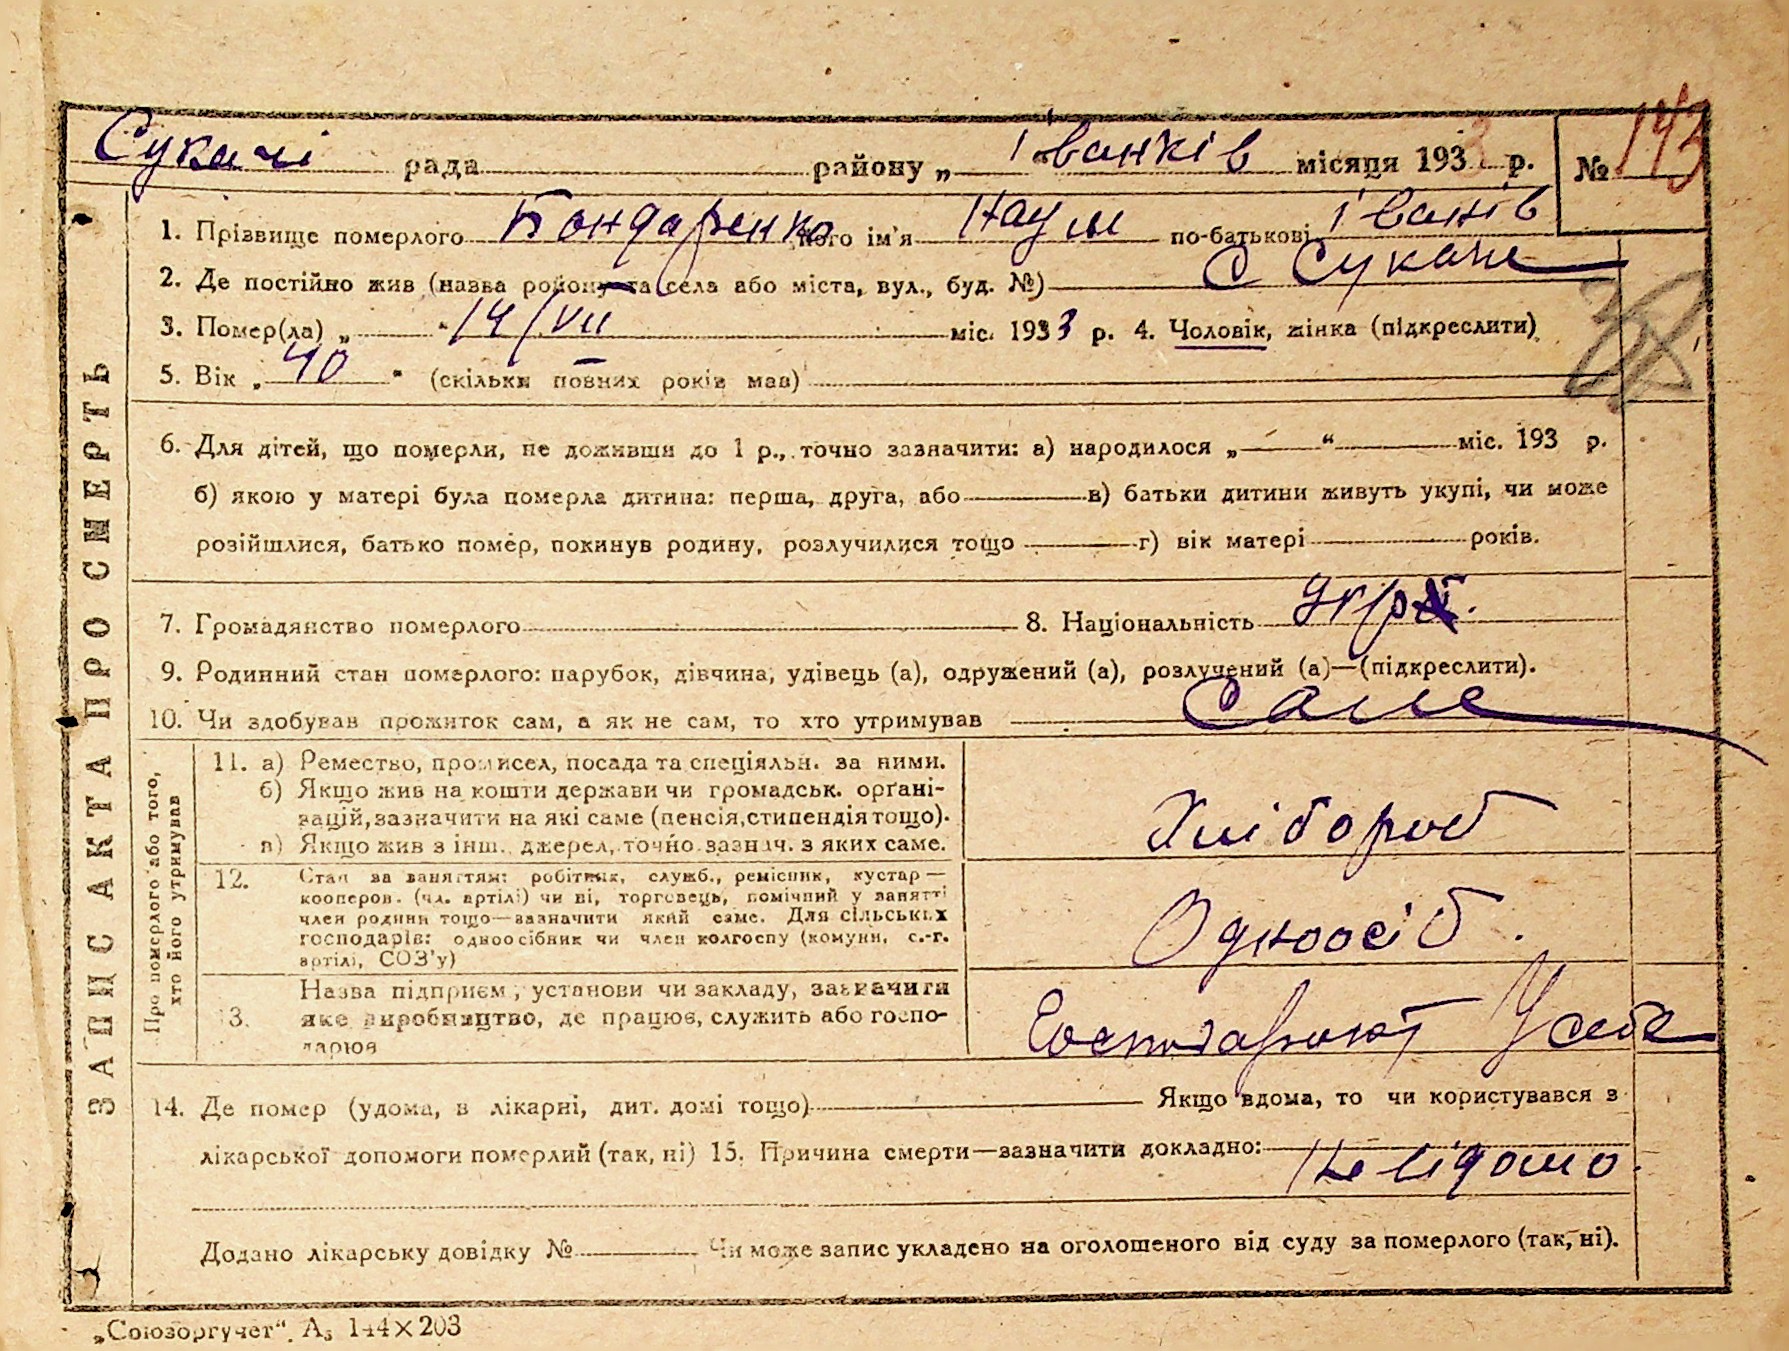 Сукачі рада району „ Іванків місяця 1933 р. № 143
1. Прізвище померлого Бондаренко його ім'я Наум по-батькові Іванів
2. Де постійно жив (назва району та села або міста, вул., буд. №) с Сукачі
3. Помер(ла) „ “ 14/VII міс. 1933 р. 4. Чоловік, жінка (підкреслити).
5. Вік „ 40 “ (скільки повних років мав)
6. Для дітей, що померли, не доживши до 1 р., точно зазначити: а) народилося „ “ міс. 193 р.
б) якою у матері була померла дитина: перша, друга, або в) батьки дитини живуть укупі, чи може
розійшлися, батько помер, покинув родину, розлучилися тощо г) вік матері років.
7. Громадянство померлого 8. Національність Укр.
9. Родинний стан померлого: парубок, дівчина, удівець (а), одружений (а), розлучений (а)—(підкреслити).
10. Чи здобував прожиток сам, а як не сам, то хто утримував Саме
ЗАПИС АКТА ПРО СМЕРТЬ
Про померлого або того, хто його утримував
11. а) Ремество, промисел, посада та спеціяльн. за ними.
б) Якщо жив на кошти держави чи громадськ. орґані-
зацій, зазначити на які саме (пенсія, стипендія тощо).
в) Якщо жив з інш. джерел, точно зазнач. з яких саме.
Хлібороб
12. Стан за заняттям: робітник, служб., ремісник, кустар—
кооперов. (чл. артілі) чи ні, торговець, помічний у занятті
член родини тощо—зазначити який саме. Для сільських
господарів: одноосібник чи член колгоспу (комуни, с.-г.
артілі, СОЗ'у)
Одноосіб.
13. Назва підприєм., установи чи закладу, зазначити
яке виробництво, де працює, служить або госпо-
дарює
У себе
14. Де помер (удома, в лікарні, дит. домі тощо) Якщо вдома, то чи користувався з
лікарської допомоги померлий (так, ні) 15. Причина смерти—зазначити докладно:
Не відомо.
Додано лікарську довідку № Чи може запис укладено на оголошеного від суду за померлого (так, ні).
„Союзоргучет“. А₅ 144×203